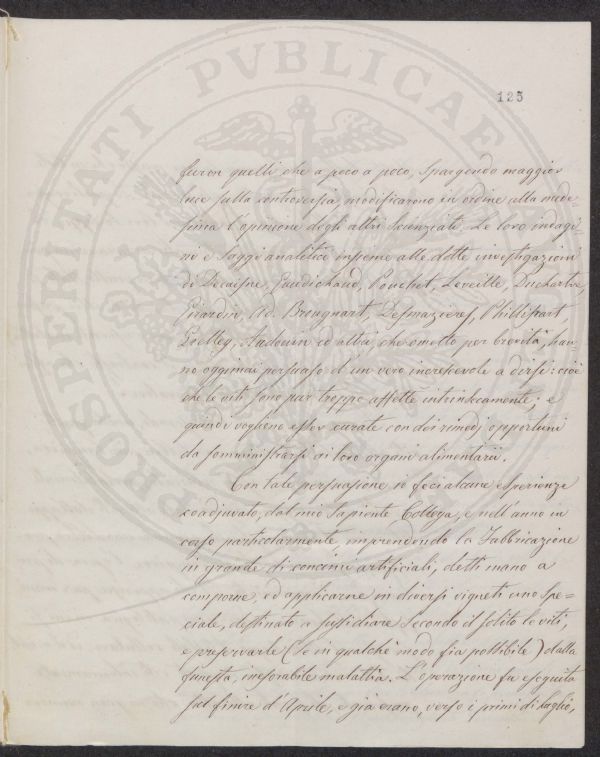 PROSPERITATI PVBLICAE
125
furon quelli che a poco a poco, spargendo maggior
luce sulla controversia, modificarono in ordine alla mede-
sima l'opinione degli altri Scienziati. Le loro indagi-
ni e saggi analitici insieme alle dotte investigazioni
di Decaisne, Gaudichaud, Pouchet, Leveille, Duchartre,
Girardin, Ad. Brongnart, Desmazieres, Phillipart,
Audouin ed altri, che ometto per brevità, han-
no oggimai persuaso d'un vero increscevole a dirsi: cioè
che le viti sono pur troppo affette intrinsecamente; e
quindi vogliono esser curate con dei rimedj opportuni
da somministrarsi ai loro organi alimentarii.
Con tale persuasione io feci alcune esperienze
coadjuvato dal mio sapiente Collega, e nell'anno in
corso particolarmente, imprendendo la Fabbricazione
in grande di concimi artificiali, detti mano a
comporne, ed applicarne in diversi vigneti uno spe=
ciale, destinato a sussidiare secondo il solito le viti,
e preservarle (se in qualche modo fia possibile) dalla
funesta, inesorabile malattia. L'operazione fu eseguita
sul finire d'Aprile, e già erano, verso i primi di Luglio,